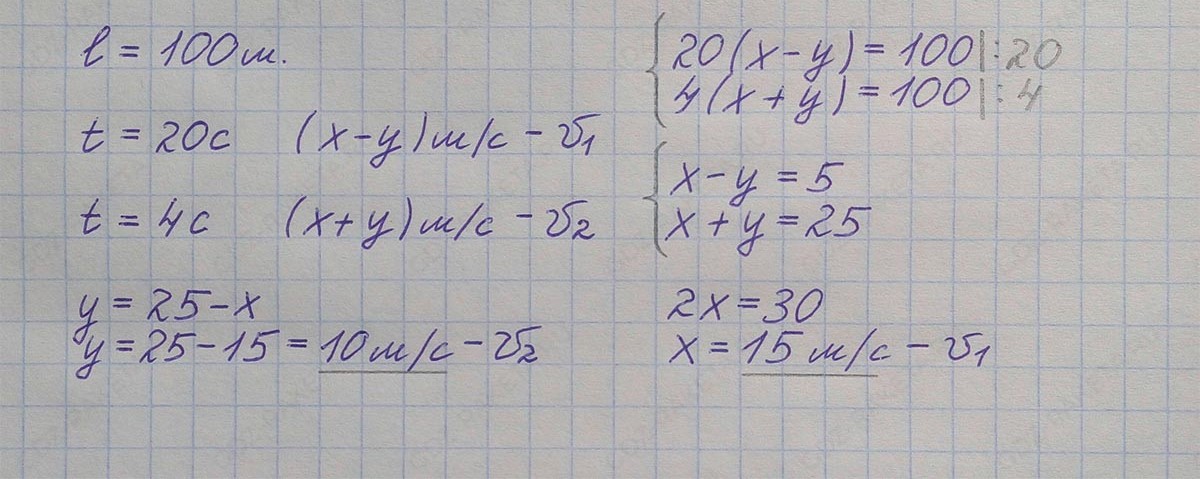 l = 100м.
t = 20с (x-y)м/с - v₁
t = 4с (x+y)м/с - v₂
y = 25-x
y = 25-15 = 10м/с - v₂
20(x-y) = 100|:20
4(x+y) = 100|:4
x-y = 5
x+y = 25
2x = 30
x = 15м/с - v₁